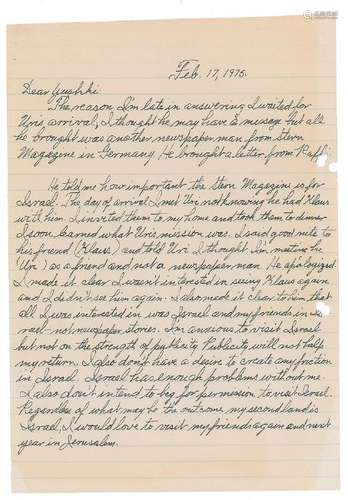 Feb. 17, 1975.
Dear Yushki
The reason I'm late in answering I waited for
Uri's arrival, I thought he may have a message but all
he brought was another newspaper man from Stern
Magazine in Germany. He brought a letter from Raffi.
He told me how important the Stern Magazine is for
Israel. The day of arrival I met Uri not knowing he had Klaus
with him I invited them to my home and took them to dinner
I soon learned what Uri's mission was. I said good nite to
his friend (Klaus) and told Uri I thought I'm meeting he
Uri) as a friend and not a newspaper man. He apologized
I made it clear I wasn't interested in seeing Klaus again
and I didn't see him again. I also made it clear to him that
all I was interested in was Israel and my friends in Is
rael - not newspaper stories. I'm anxious to visit Israel
but not on the strength of publicity Publicity will not help
my return. I also don't have a desire to create any friction
in Israel. Israel has enough problems without me.
I also don't intend to beg for permission to visit Israel.
Regardless of what may be the outcome my second land is
Israel, I would love to visit my friends again and next
year in Jerusalem.